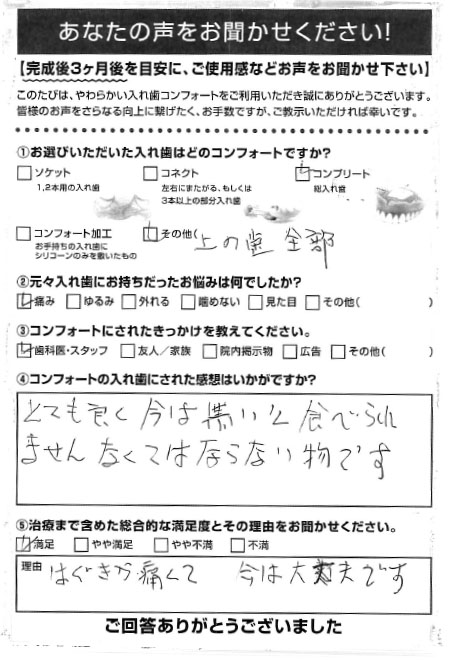 あなたの声をお聞かせください!
【完成後3ヶ月後を目安に、ご使用感などお声をお聞かせ下さい】
このたびは、やわらかい入れ歯コンフォートをご利用いただき誠にありがとうございます。
皆様のお声をさらなる向上に繋げたく、お手数ですが、ご教示いただければ幸いです。
①お選びいただいた入れ歯はどのコンフォートですか?
ソケット コネクト コンプリート
1,2本用の入れ歯 左右にまたがる、もしくは 総入れ歯
3本以上の部分入れ歯
コンフォート加工 その他( 上の歯 全部
お手持ちの入れ歯に
シリコーンのみを敷いたもの
②元々入れ歯にお持ちだったお悩みは何でしたか?
痛み ゆるみ 外れる 噛めない 見た目 その他( )
③コンフォートにされたきっかけを教えてください。
歯科医・スタッフ 友人/家族 院内掲示物 広告 その他( )
④コンフォートの入れ歯にされた感想はいかがですか?
とても良く 今は無いと 食べられ
ません なくては なら ない 物です
⑤治療まで含めた総合的な満足度とその理由をお聞かせください。
満足 やや満足 やや不満 不満
理由 はぐきが 痛くて 今は大丈夫です
ご回答ありがとうございました